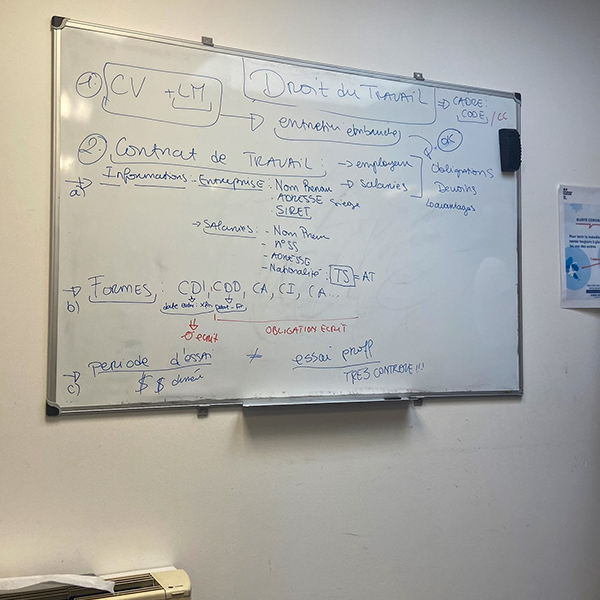 Droit du TRAVAIL
1. CV + LM
=> CADRE:
CODE / CC
entretien embauche
OK
2. Contrat de TRAVAIL: → employeur
→ salariés
obligations
Devoirs
avantages
a) Informations - Entreprise: Nom Prénom
ADRESSE siège
SIRET
→ SALARIÉS: - Nom Prénom
- n° SS
- ADRESSE
- Nationalité: TS = AT
b) FORMES: CDI, CDD, CA, CI, CA...
écrit
OBLIGATION ECRIT
c) PERIODE d'essai ≠ essai proff
$ $ durée
TRES CONTROLE !!!